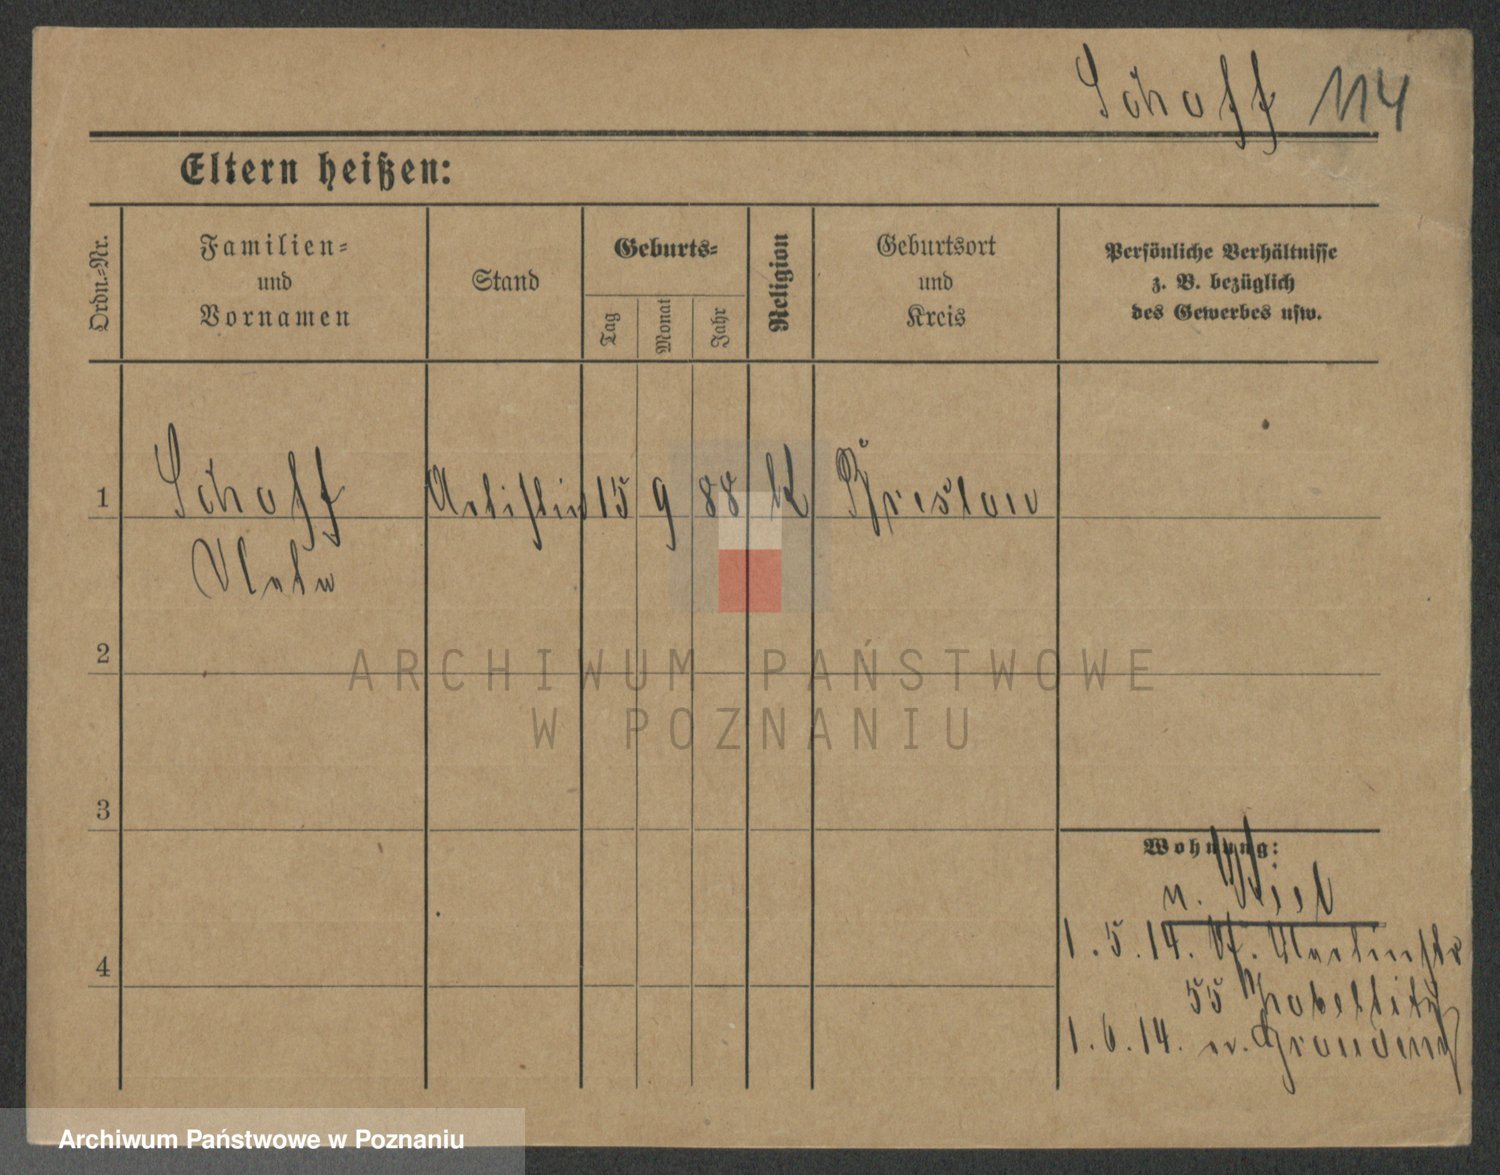 Schaff 114
Eltern heißen:
Ordn.-Nr.
Familien-
und
Vornamen
Stand
Geburts-
Tag
Monat
Jahr
Religion
Geburtsort
und
Kreis
Persönliche Verhältnisse
z. B. bezüglich
des Gewerbes usw.
1 Schaff Artistin 15 9 88 K Breslau
2
3
4
Wohnung:
n. Kiel
1.5.14. St. Martinstr
55
1.6.14. n. Graudenz
ARCHIWUM PAŃSTWOWE
W POZNANIU
Archiwum Państwowe w Poznaniu